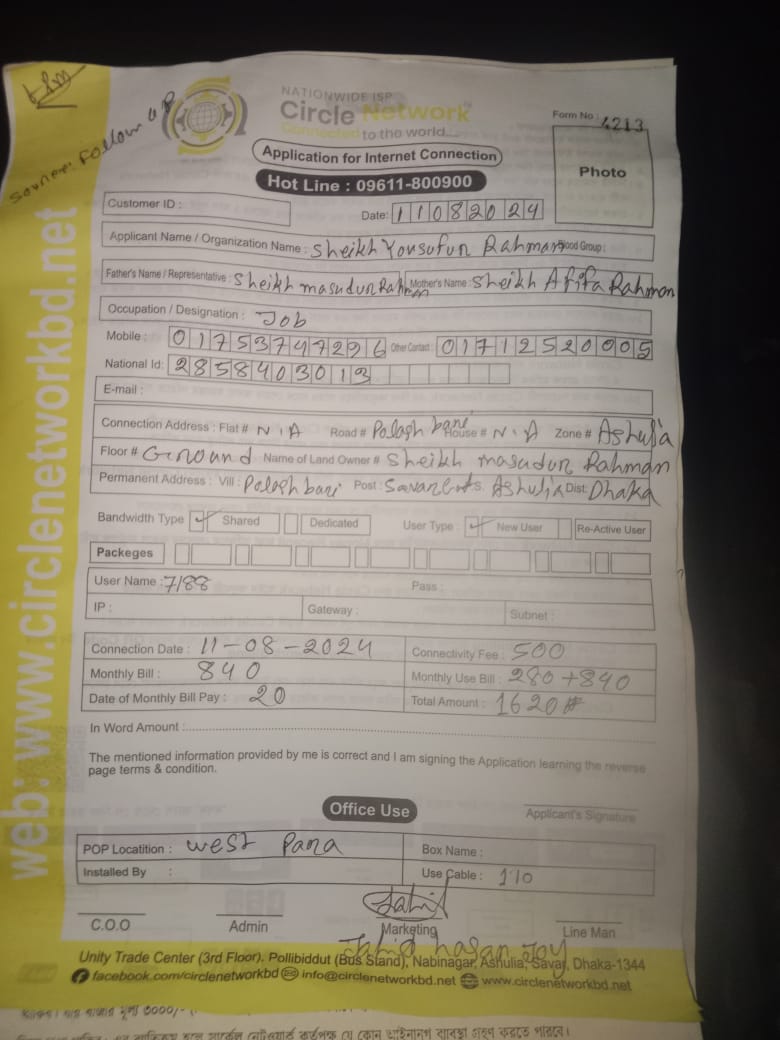 Source: Follow UP
NATIONWIDE ISP
Circle Network™
Connected to the world...
Form No : 4213
Application for Internet Connection
Photo
Hot Line : 09611-800900
Customer ID :
Date: 11082024
Applicant Name / Organization Name : Sheikh Yousufur Rahman Blood Group :
Father's Name / Representative : Sheikh masudur Rahman Mother's Name : Sheikh Afifa Rahman
Occupation / Designation : Job
Mobile : 01753747296 Other Contact : 01712520005
National Id: 2858403013
E-mail :
Connection Address : Flat # N.A Road # Palash bari House # N.A Zone # Ashulia
Floor # Ground Name of Land Owner # Sheikh masudur Rahman
Permanent Address : Vill : Palash bari Post : P.S. Ashulia Dist: Dhaka
Bandwidth Type ✓ Shared Dedicated User Type : ✓ New User Re-Active User
Packeges
User Name : 7188 Pass :
IP : Gateway : Subnet :
Connection Date : 11-08-2024 Connectivity Fee : 500
Monthly Bill : 840 Monthly Use Bill : 280+840
Date of Monthly Bill Pay : 20 Total Amount : 1620
In Word Amount :
The mentioned information provided by me is correct and I am signing the Application learning the reverse
page terms & condition.
Office Use
Applicant's Signature
POP Locatition : West Para Box Name :
Installed By : Use Cable : 110
Jahid
C.O.O Admin Marketing Line Man
Jahid hasan Joy
Unity Trade Center (3rd Floor), Pollibiddut (Bus Stand), Nabinagar, Ashulia, Savar, Dhaka-1344
facebook.com/circlenetworkbd info@circlenetworkbd.net www.circlenetworkbd.net
web: www.circlenetworkbd.net
কর্তৃপক্ষ যে কোন আইনানুগ ব্যবস্থা গ্রহণ করতে পারবে।